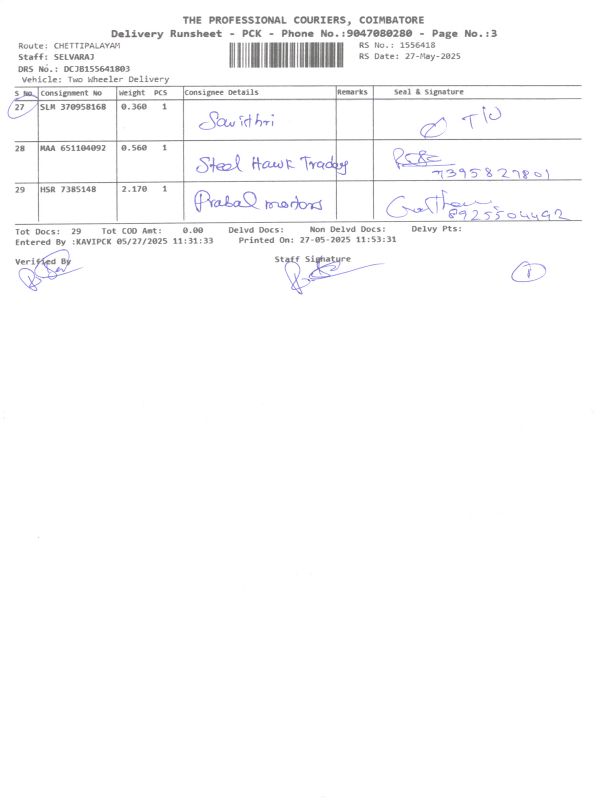 THE PROFESSIONAL COURIERS, COIMBATORE
Delivery Runsheet - PCK - Phone No.:9047080280 - Page No.:3
Route: CHETTIPALAYAM RS No.: 1556418
Staff: SELVARAJ RS Date: 27-May-2025
DRS No.: DCJB155641803
Vehicle: Two Wheeler Delivery
S No. Consignment No Weight PCS Consignee Details Remarks Seal & Signature
27 SLM 370958168 0.360 1 Savithri
28 MAA 651104092 0.560 1 Steel Hawk Tradey 7395827801
29 HSR 7385148 2.170 1 Prabal motors 8925504492
Tot Docs: 29 Tot COD Amt: 0.00 Delvd Docs: Non Delvd Docs: Delvy Pts:
Entered By :KAVIPCK 05/27/2025 11:31:33 Printed On: 27-05-2025 11:53:31
Verified By Staff Signature
1